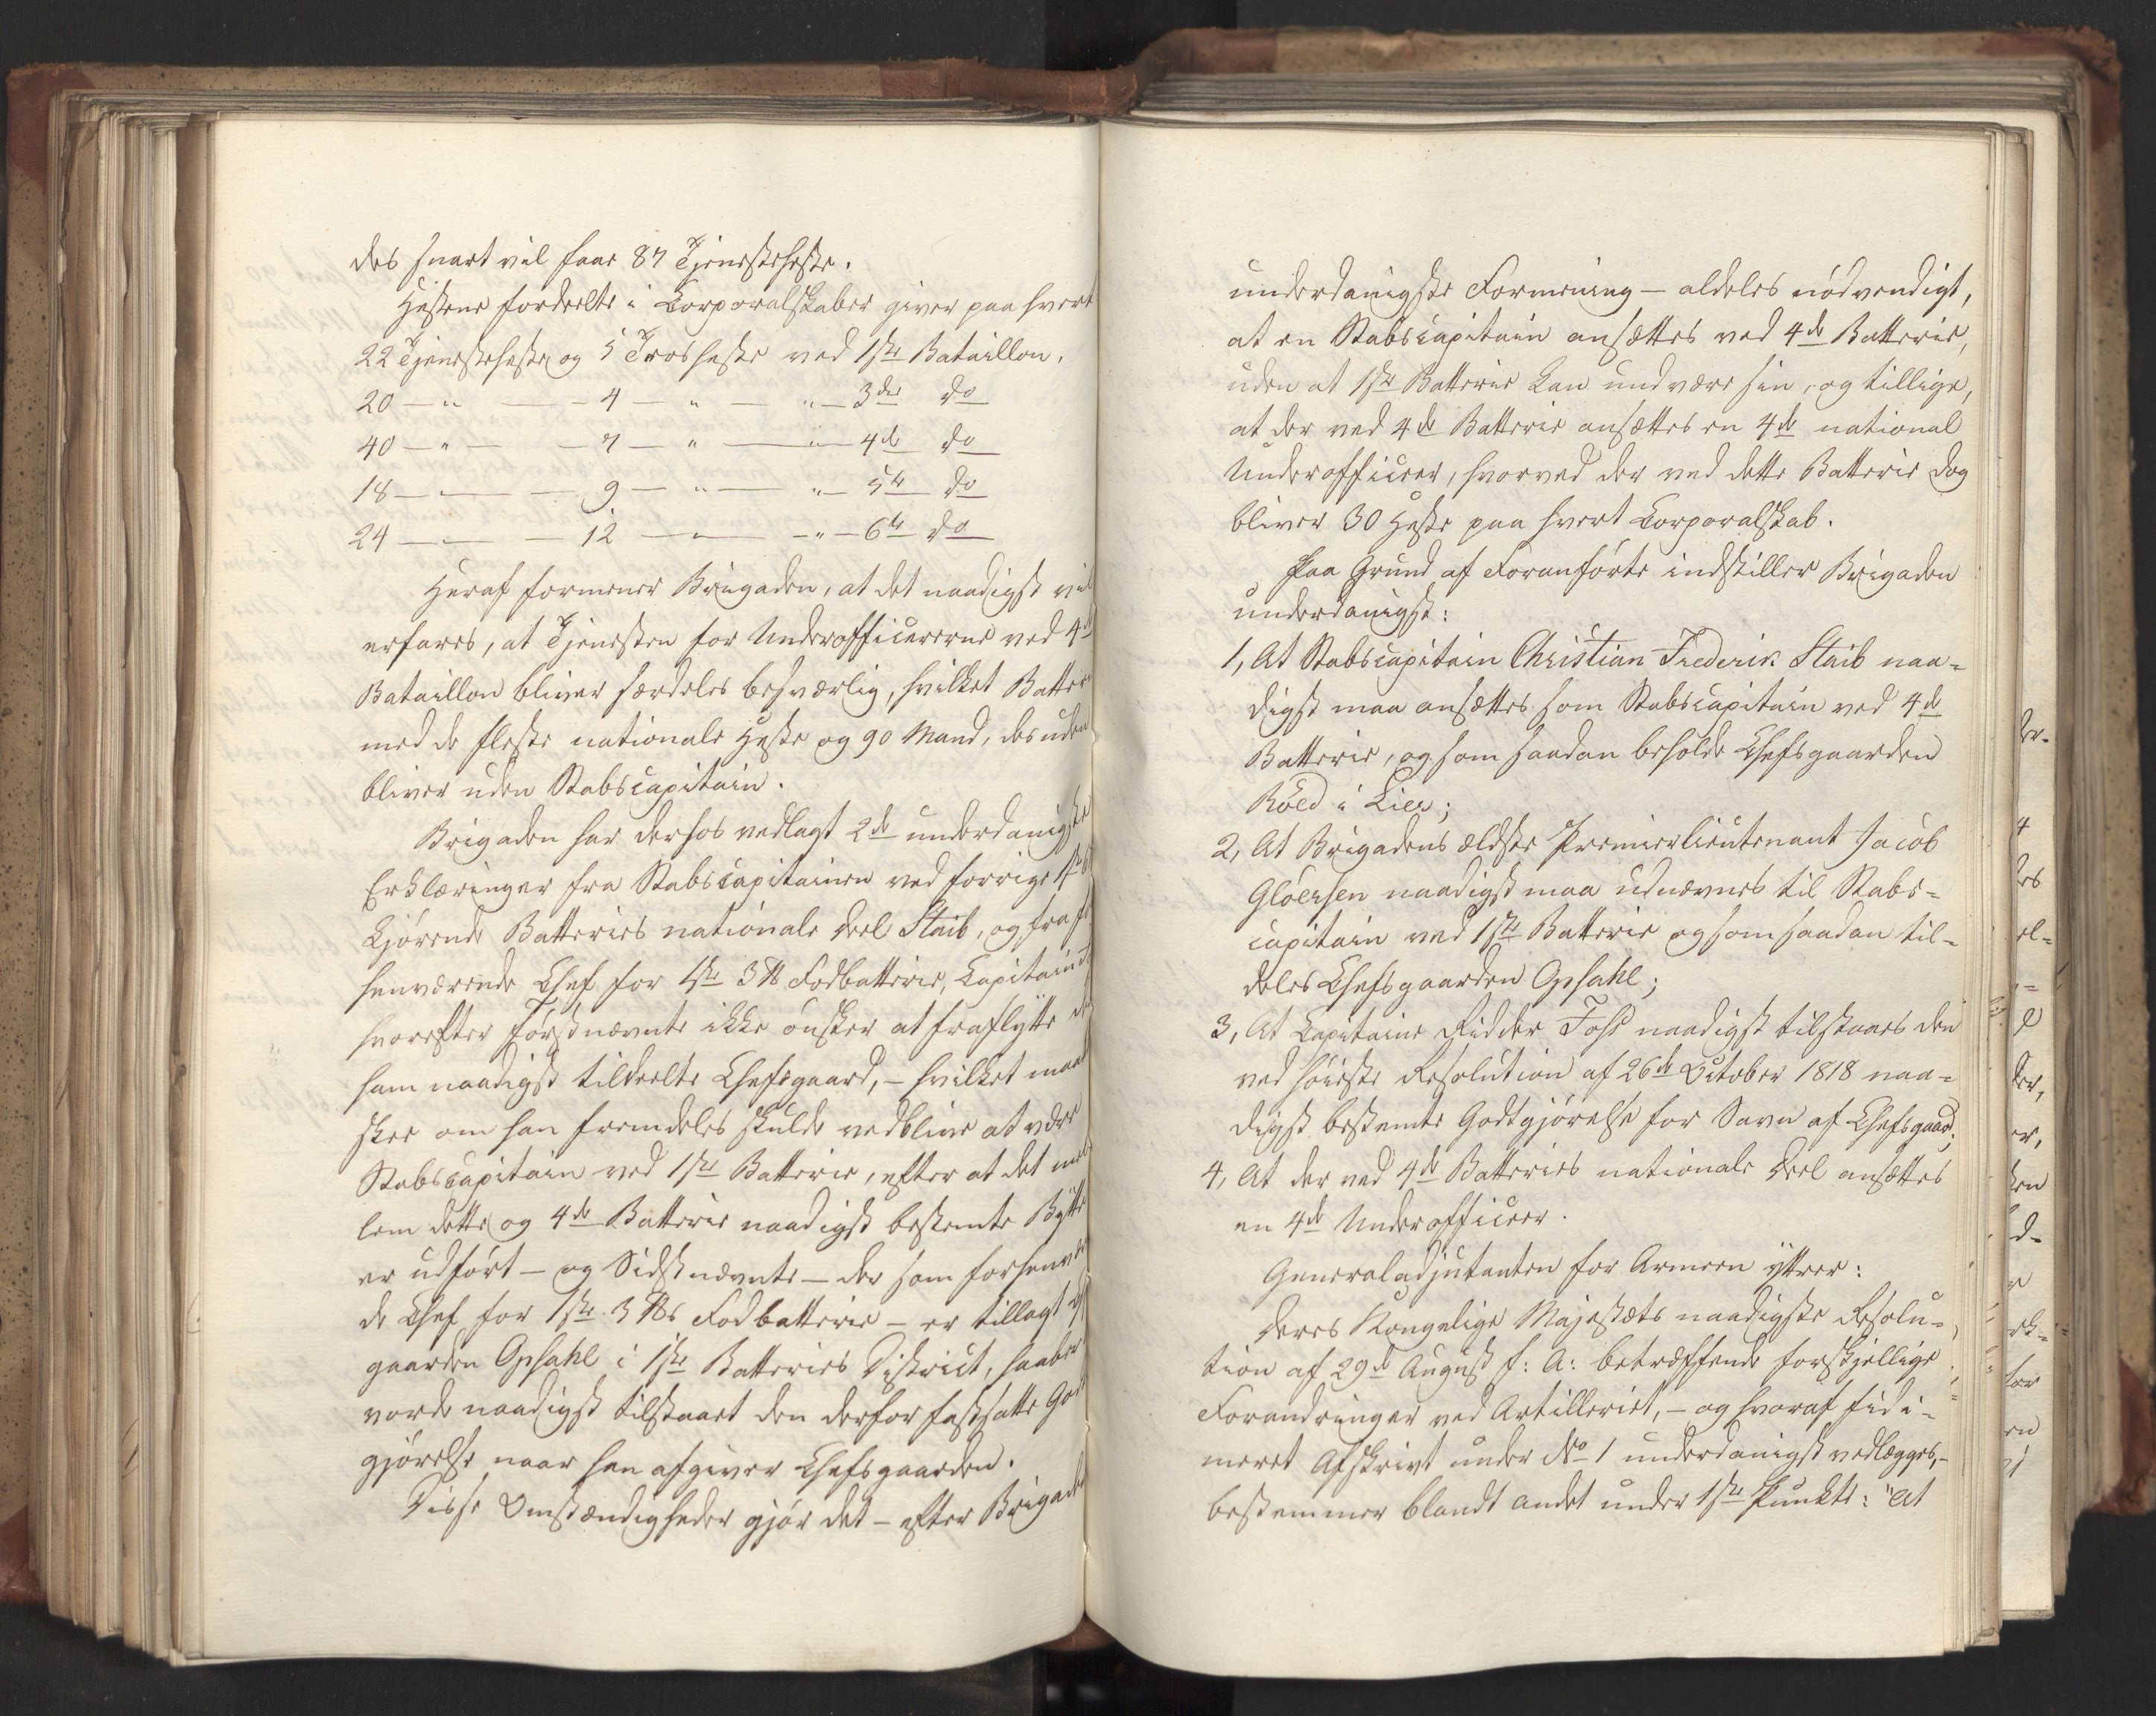 des snart vil faae 87 Tjenesteheste.
Hestene fordeelte i Corporalskaber giver paa hvert
22 Tjenesteheste og 5 Trosheste ved 1ste Bataillon.
20 — " — 4 — " — " — 3die do
40 — " — 7 — " — " — 4de do
18 — " — 9 — " — " — 5te do
24 — " — 12 — " — " — 6te do
Heraf formener Brigaden, at det naadigst vil
erfares, at Tjenesten for Underofficererne ved 4de
Bataillon bliver særdeles besværlig, hvilket Batterie
med de fleste nationale Heste og 90 Mand, desuden
bliver uden Stabscapitain.
Brigaden har derhos vedlagt 2de underdanigste
Erklæringer fra Stabscapitainen ved forrige 1ste
kjørende Batteries nationale Deel Staib, og fra
henværende Chef for 1ste 3 ℔ Fodbatterie, Capitain
hvorefter Førstnævnte ikke ønsker at fraflytte
ham naadigst tildeelte Chefsgaard, – hvilket maa
skee om han fremdeles skulde vedblive at være
Stabscapitain ved 1ste Batterie, efter at det mel
lem dette og 4de Batterie naadigst bestemte Bytte
er udført – og Sidstnævnte – der som forhenvæ
de Chef for 1ste 3 ℔s Fodbatterie – er tillagt
gaarden Opsahl i 1ste Batteries District, haaber
vorde naadigst tilstaaet den derfor fastsatte God
gjørelse naar han afgiver Chefsgaarden.
Disse Omstændigheder gjør det – efter Brigade
underdanigste Formening – aldeles nødvendigt,
at en Stabscapitain ansættes ved 4de Batterie,
uden at 1ste Batterie kan undvære sin, og tillige,
at der ved 4de Batterie ansættes en 4de national
Underofficeer, hvorved der ved dette Batterie dog
bliver 30 Heste paa hvert Corporalskab.
Paa Grund af Foranførte indstiller Brigaden
underdanigst:
1, At Stabscapitain Christian Frederik Staib naa=
digst maa ansættes som Stabscapitain ved 4de
Batterie, og som saadan beholde Chefsgaarden
Röed i Lier;
2, At Brigadens ældste Premierlieutenant Jacob
Gløersen naadigst maa udnævnes til Stabs=
capitain ved 1ste Batterie og som saadan til=
deles Chefsgaarden Opsahl;
3, At Capitaine Ridder Fohs naadigst tilstaaes den
ved høieste Resolution af 26de October 1818 naa=
digst bestemte Godtgjørelse for Savn af Chefsgaard;
4, At der ved 4de Batteries nationale Deel ansættes
en 4de Underofficeer.
Generaladjutanten for Armeen yttrer:
Deres Kongelige Majestæts naadigste Resolu=
tion af 29de August f: A: betræffende forskjellige
Forandringer ved Artilleriet, – og hvoraf fidi=
meret Afskrivt under No 1 underdanigst vedlægges, –
bestemmer blandt andet under 1ste Punkt: "At